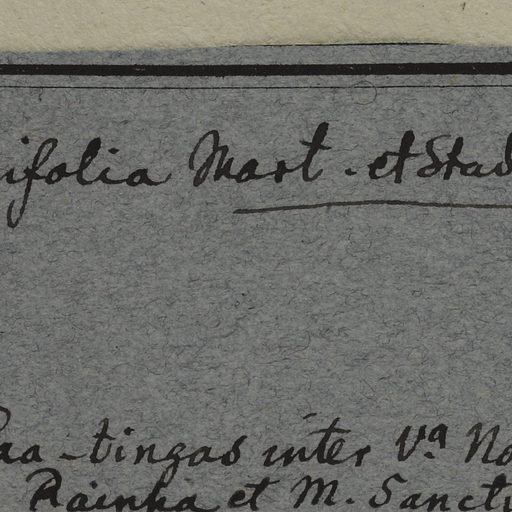 ifolia Mart. et Stad
aa-tingas inter Vª No
Rainha et M. Sanct